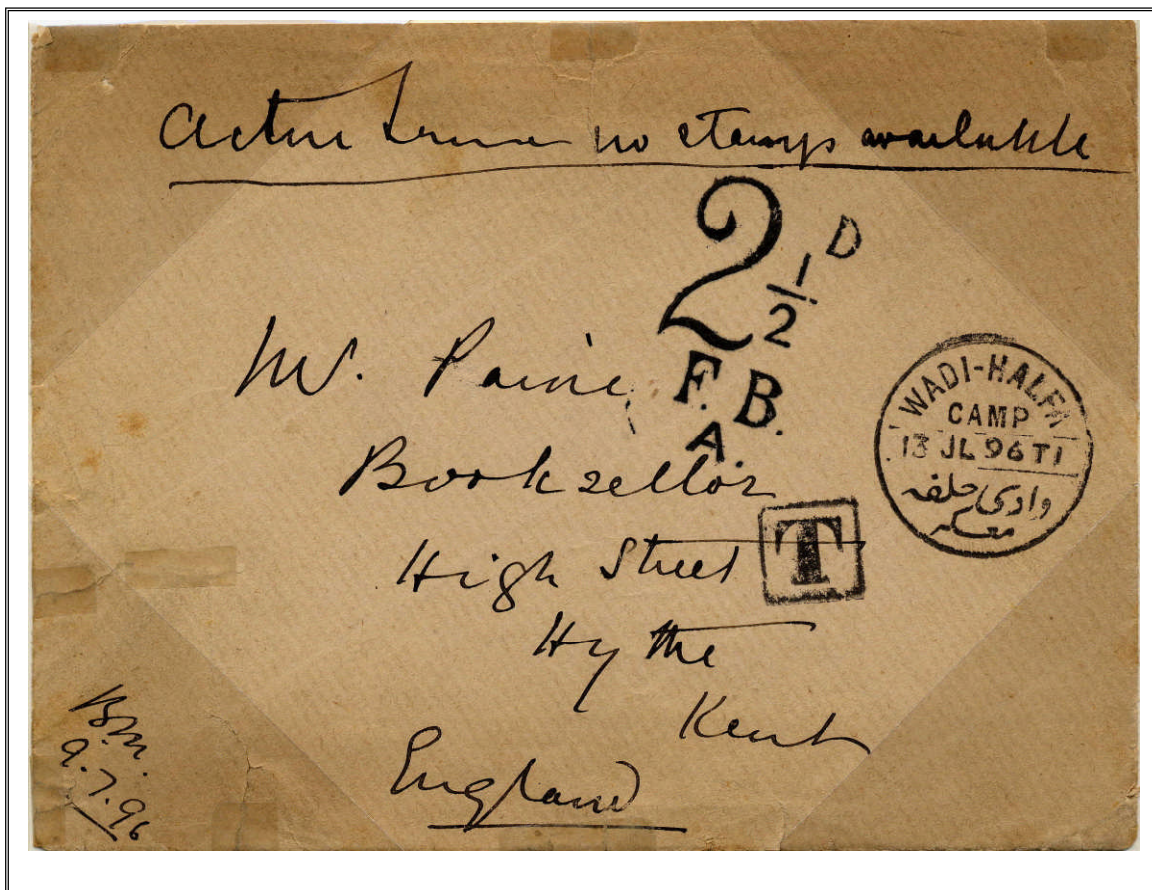 Active Service no stamps available
2 1/2 D
F. B.
A.
Mr. Paine
Booksellor
High Street
Hythe
Kent
England
T
WADI-HALFA
CAMP
13 JL 96 T1
وادى حلفه
معسكر
B.M.
9.7.96